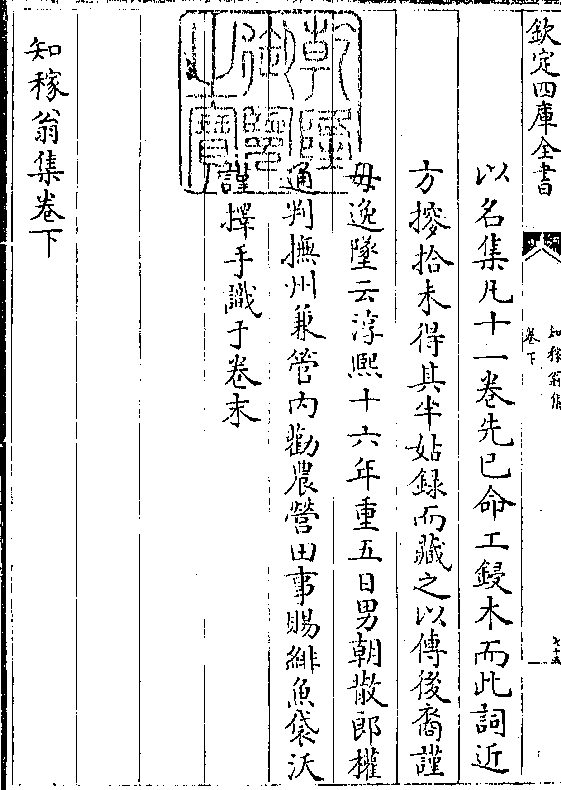 欽定四庫全書
知稼翁集
卷下
七十五
以名集凡十一卷先已命工鋟木而此詞近
方摉拾未得其半姑録而藏之以傳後裔謹
毋逸墜云淳熈十六年重五日男朝散郎權
通判撫州兼管内勸農營田事賜緋魚袋沃
謹擇手識于卷末
乾隆御覽之寶
知稼翁集卷下